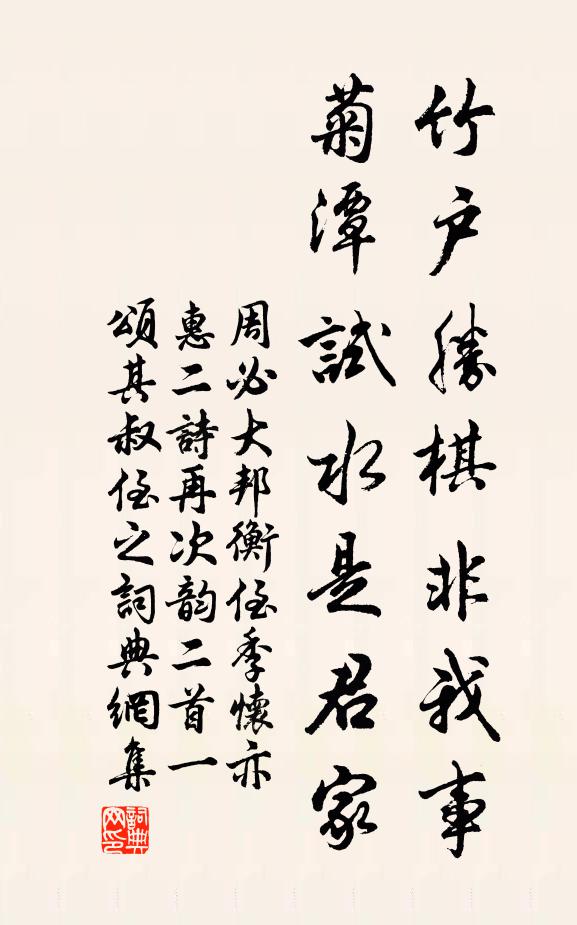 竹户勝棋非我事
菊潭試水是君家
周必大邦衡侄季懷亦
惠二詩再次韵二首一
頌其叔侄之詞典網集
詞典網印